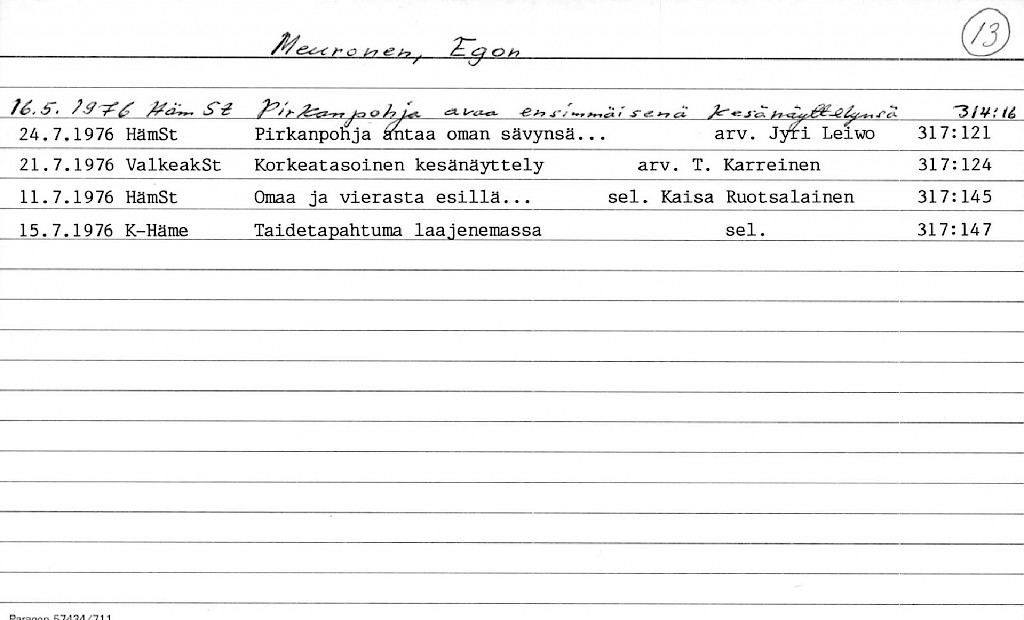 13
Meuronen, Egon
16.5. 1976 Häm St Pirkanpohja avaa ensimmäisenä kesänäyttelynsä 314:16
24.7.1976 HämSt Pirkanpohja antaa oman sävynsä... arv. Jyri Leiwo 317:121
21.7.1976 ValkeakSt Korkeatasoinen kesänäyttely arv. T. Karreinen 317:124
11.7.1976 HämSt Omaa ja vierasta esillä... sel. Kaisa Ruotsalainen 317:145
15.7.1976 K-Häme Taidetapahtuma laajenemassa sel. 317:147
Paragon 57434/711